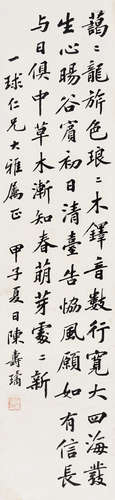 藹〻龍旂色琅〻木鐸音數行寬大四海發
生心暘谷賓初日清臺告協風願如有信長
與日俱中草木漸知春萌芽處〻新
一球仁兄大雅屬正 甲子夏日陳壽璚